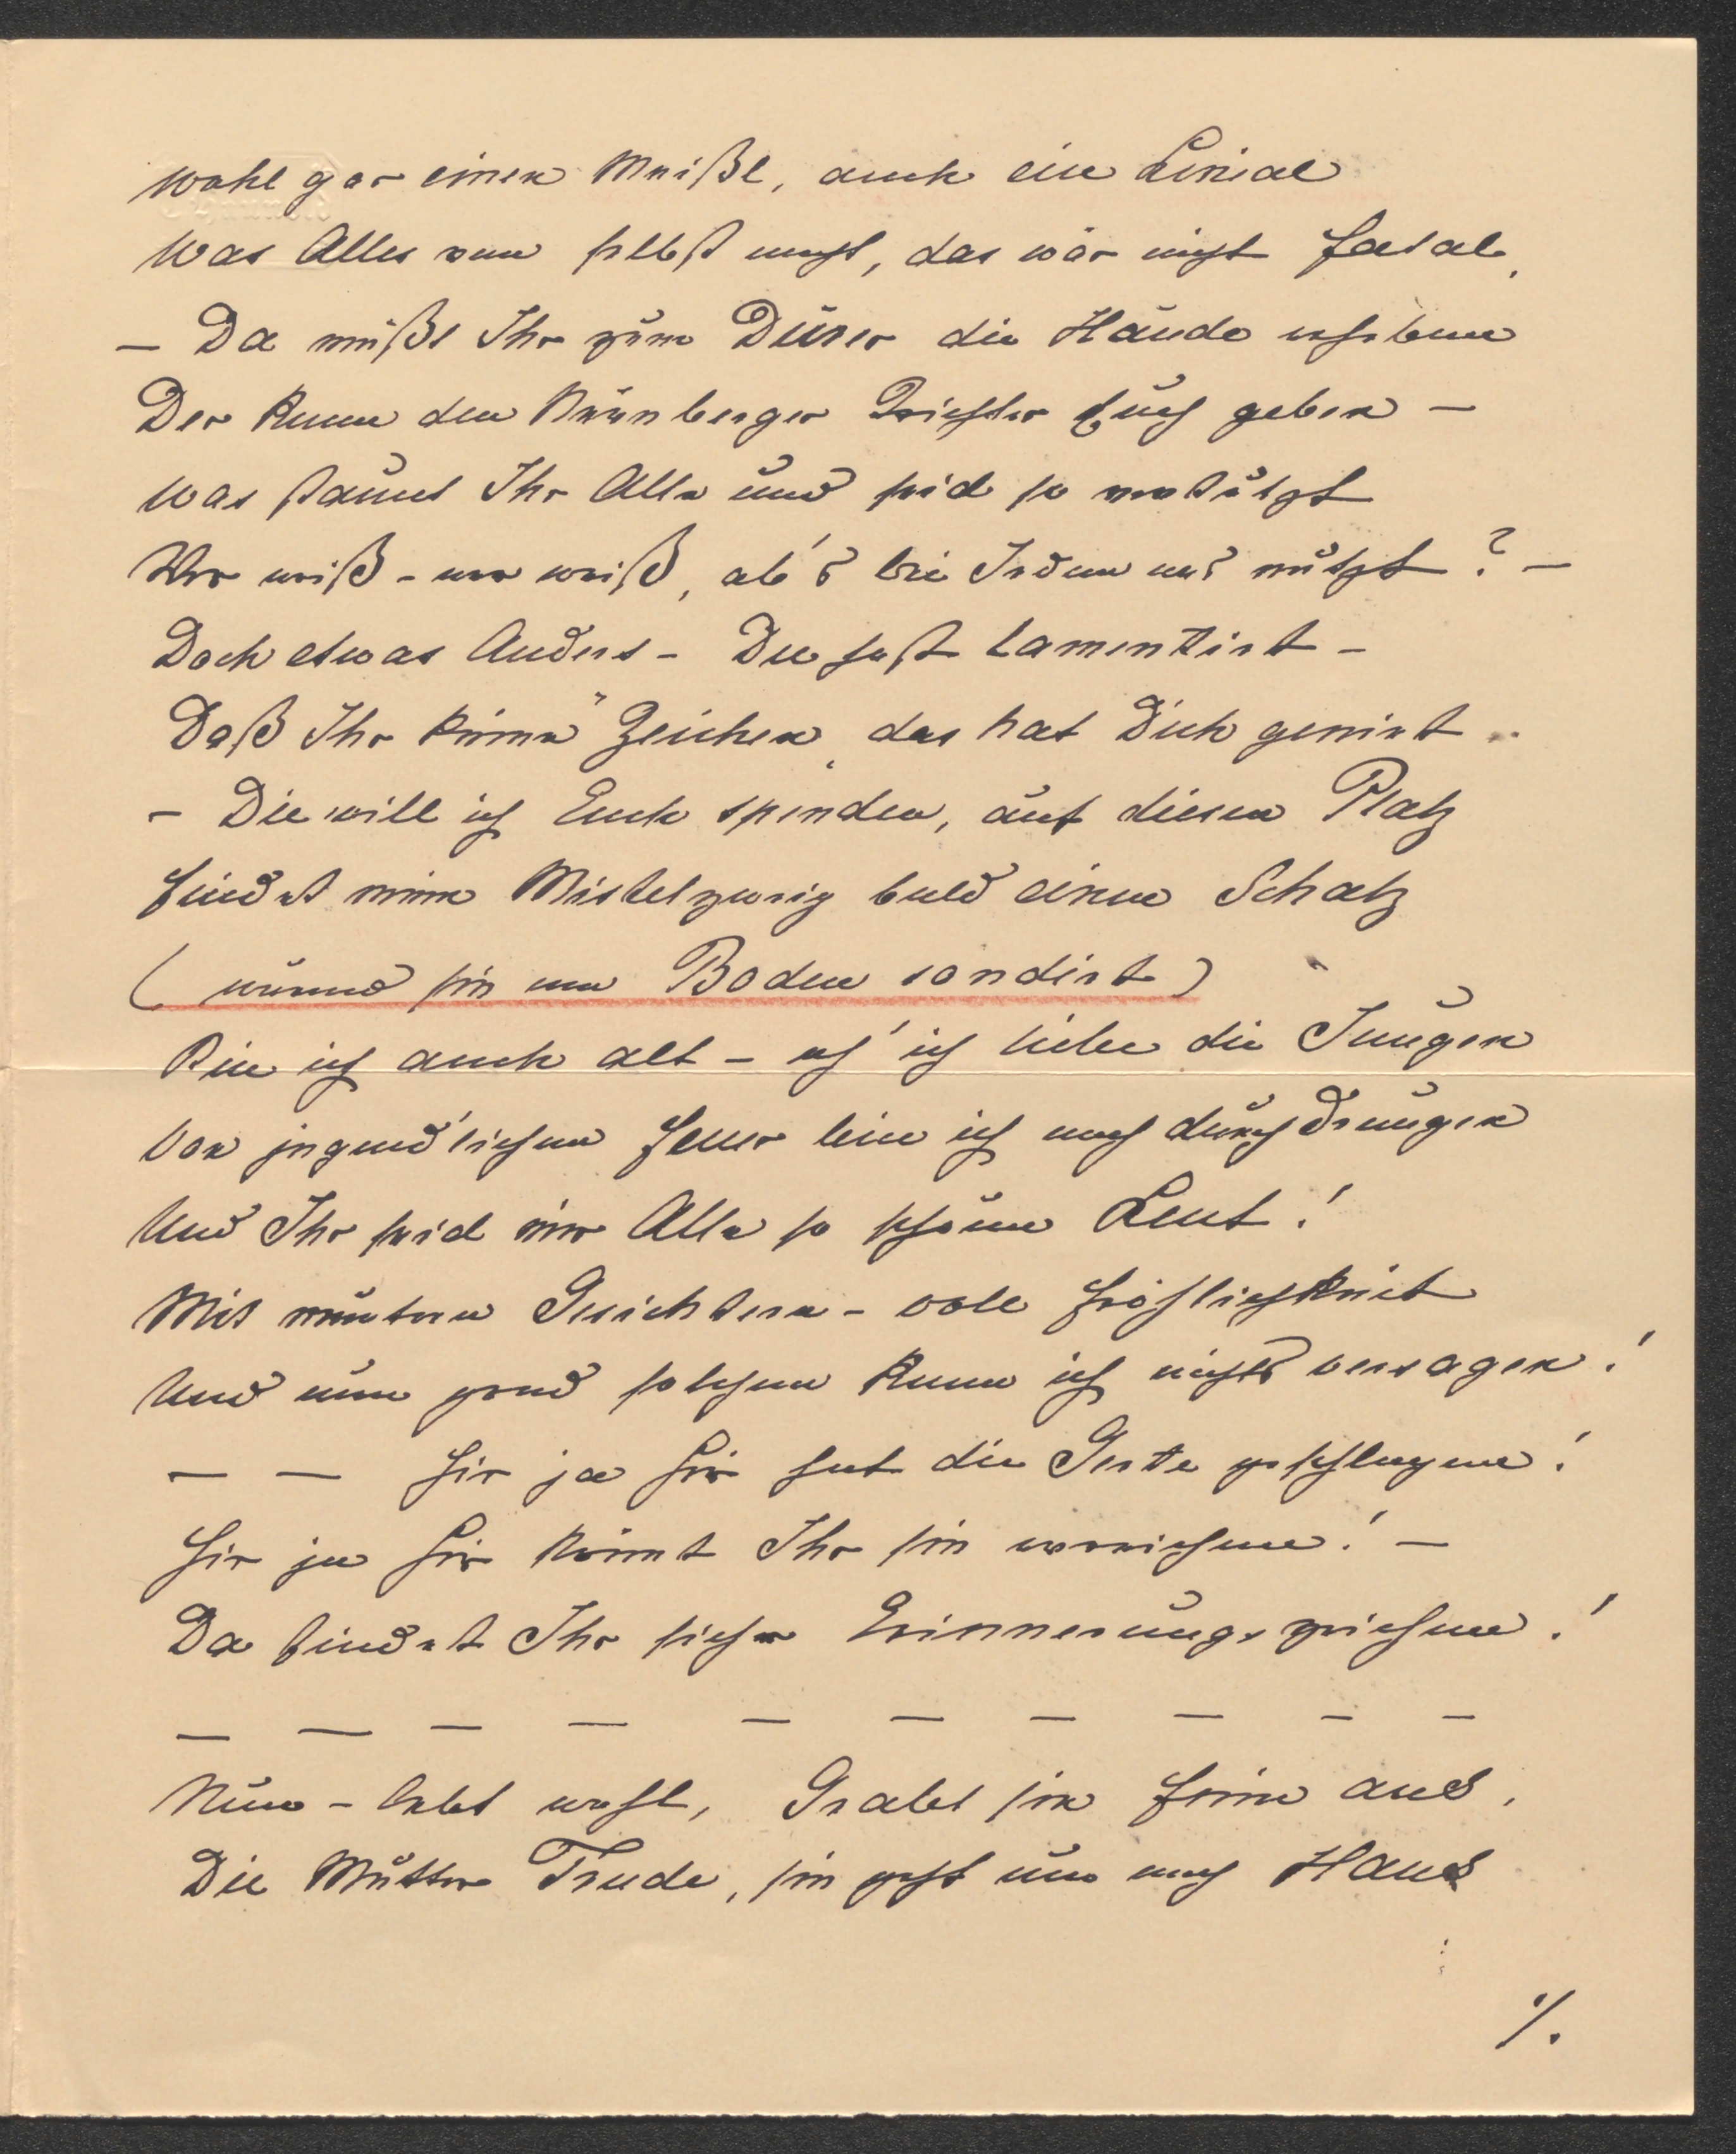 wohl gar einen Meißl, auch ein Linial
Was Alles von selbst macht, das wär nicht fatal,
— Da müßt Ihr zum Dürer die Hände erheben
Der kann den Nürnberger Trichter Euch geben —
Was staunt Ihr Alle und seid so verdutzt
Wer weiß - wer weiß, ob's bei Jedem was nützt? —
Doch etwas Anders - Du hast lamentirt -
Daß Ihr keine "Zeichen", das hat Dich genirt
- Die will ich Euch spenden, auf diesem Platz
findet mein Mistelzweig bald einen Schatz
( während sie am Boden sondirt )
Bin ich auch alt - ach ich liebe die Jungen
Von jugendlichem Feuer bin ich noch durchdrungen
Und Ihr seid mir Alle so schöne Leut!
Mit muntern Gesichtern - voll Fröhlichkeit
Und nun grad solchen kann ich nichts versagen!
— — hier ja hier hat die Gerte geschlagen!
hier ja hier könnt Ihr sie erreichen! —
Da findet Ihr sicher Erinnerungszeichen!
— — — — — — — — — —
Nun - lebt wohl, Grabet sie fein aus,
Die Mutter Trude, sie geht nun nach Haus
./.